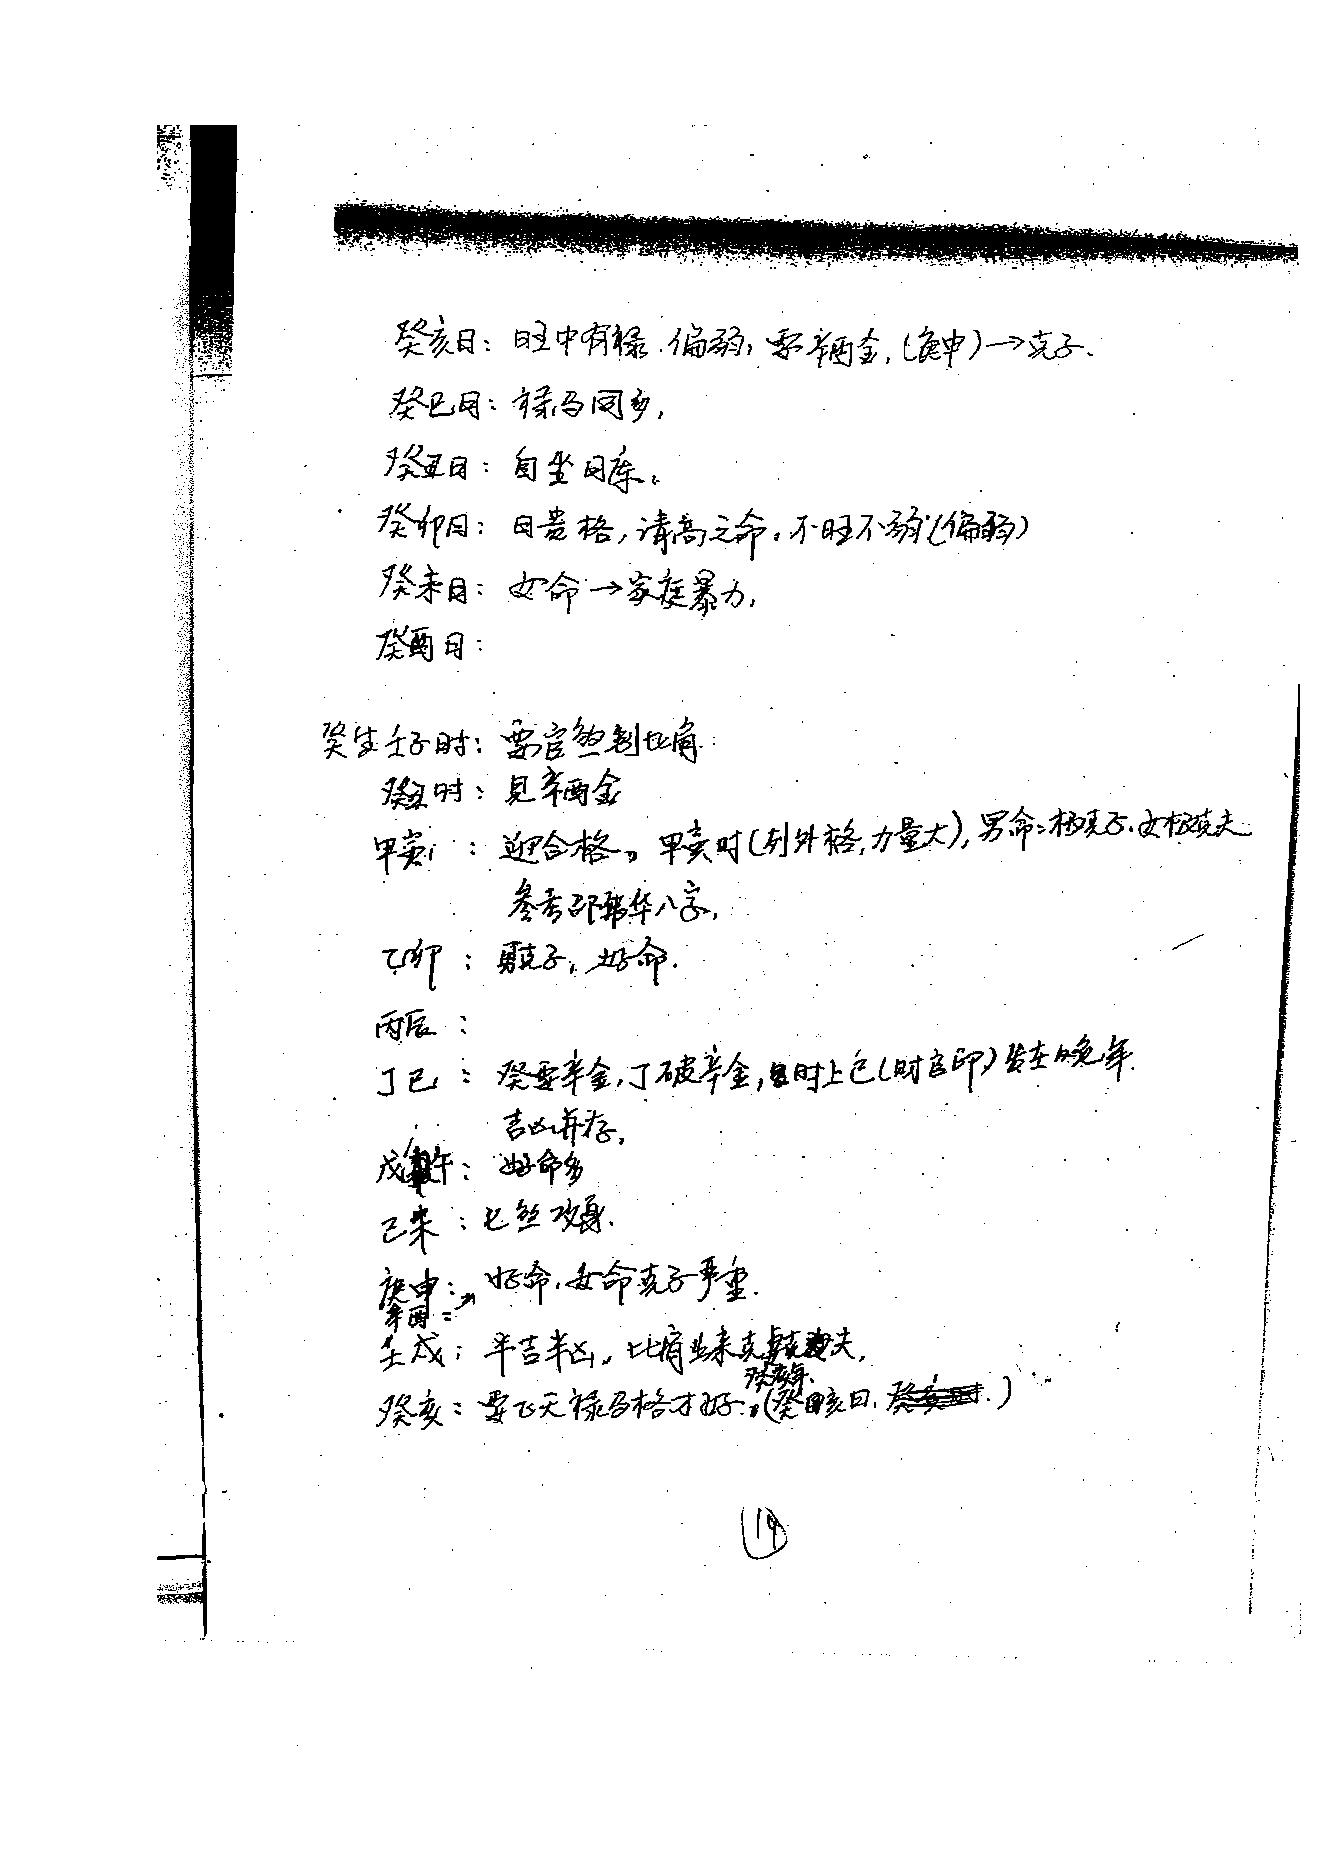 癸亥日：旺中有禄．偏弱，要辛酉金，(庚申)→克子．
癸巳日：禄马同乡，
癸丑日：自坐日库。
癸卯日：日贵格，清高之命。不旺不弱(偏弱)
癸未日：女命→家庭暴力，
癸酉日：
癸生壬子时：要官煞制比肩
癸丑时：见辛酉金
甲寅：迎合格。甲寅时(列外格,力量大)，男命：极克子．女极克夫
参考邵韩华八字，
乙卯：男克子，好命．
丙辰：
丁巳：癸要辛金，丁破辛金，时上巳(财官印)发在晚年．
吉凶并存，
戊午：好命多
己未：七煞攻身．
庚申：好命．女命克子严重．
辛酉：↗
壬戌：半吉半凶，比肩上来克夫，
癸亥年．
癸亥：要飞天禄马格才好。(癸亥日． )
19